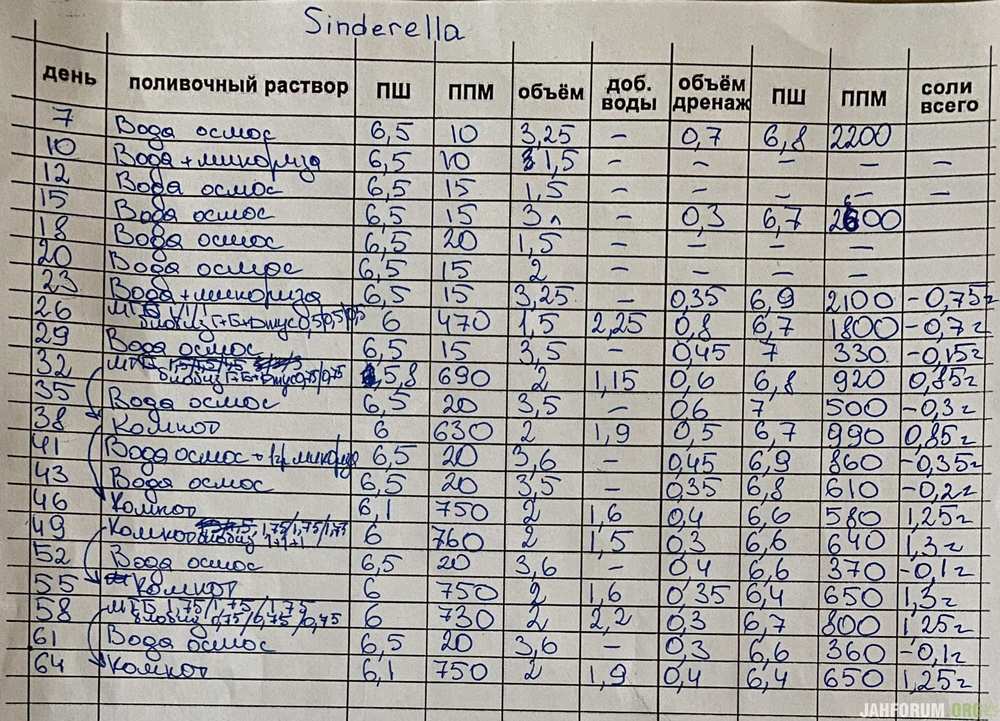 Sinderella
день поливочный раствор ПШ ППМ объём доб. воды объём дренаж ПШ ППМ соли всего
7 Вода осмос 6,5 10 3,25 – 0,7 6,8 2200
10 Вода + микориза 6,5 10 1,5 – – – – –
12 Вода осмос 6,5 15 1,5 – – – – –
15 Вода осмос 6,5 15 3л – 0,3 6,7 2600
18 Вода осмос 6,5 20 1,5 – – – –
20 Вода осмос 6,5 15 2 – – – –
23 Вода + микориза 6,5 15 3,25 – 0,35 6,9 2100 –0,75г
26 0,5/0,5/0,5 6 470 1,5 2,25 0,8 6,7 1800 –0,7г
29 Вода осмос 6,5 15 3,5 – 0,45 7 330 –0,15г
32 0,75/0,75 5,8 690 2 1,15 0,6 6,8 920 0,85г
35 Вода осмос 6,5 20 3,5 – 0,6 7 500 –0,3г
38 Компот 6 630 2 1,9 0,5 6,7 990 0,85г
41 Вода осмос + 1гр микориза 6,5 20 3,6 – 0,45 6,9 860 –0,35г
43 Вода осмос 6,5 20 3,5 – 0,35 6,8 610 –0,2г
46 Компот 6,1 750 2 1,6 0,4 6,6 580 1,25г
49 Компот 1,75/1,75/1,75 1+1+1 6 760 2 1,5 0,3 6,6 640 1,3г
52 Вода осмос 6,5 20 3,6 – 0,4 6,6 370 –0,1г
55 Компот 6 750 2 1,6 0,35 6,4 650 1,3г
58 1,75/1,75/1,75 0,75/0,75/0,75 6 730 2 2,2 0,3 6,7 800 1,25г
61 Вода осмос 6,5 20 3,6 – 0,3 6,6 360 –0,1г
64 Компот 6,1 750 2 1,9 0,4 6,4 650 1,25г
JAHFORUM.ORG